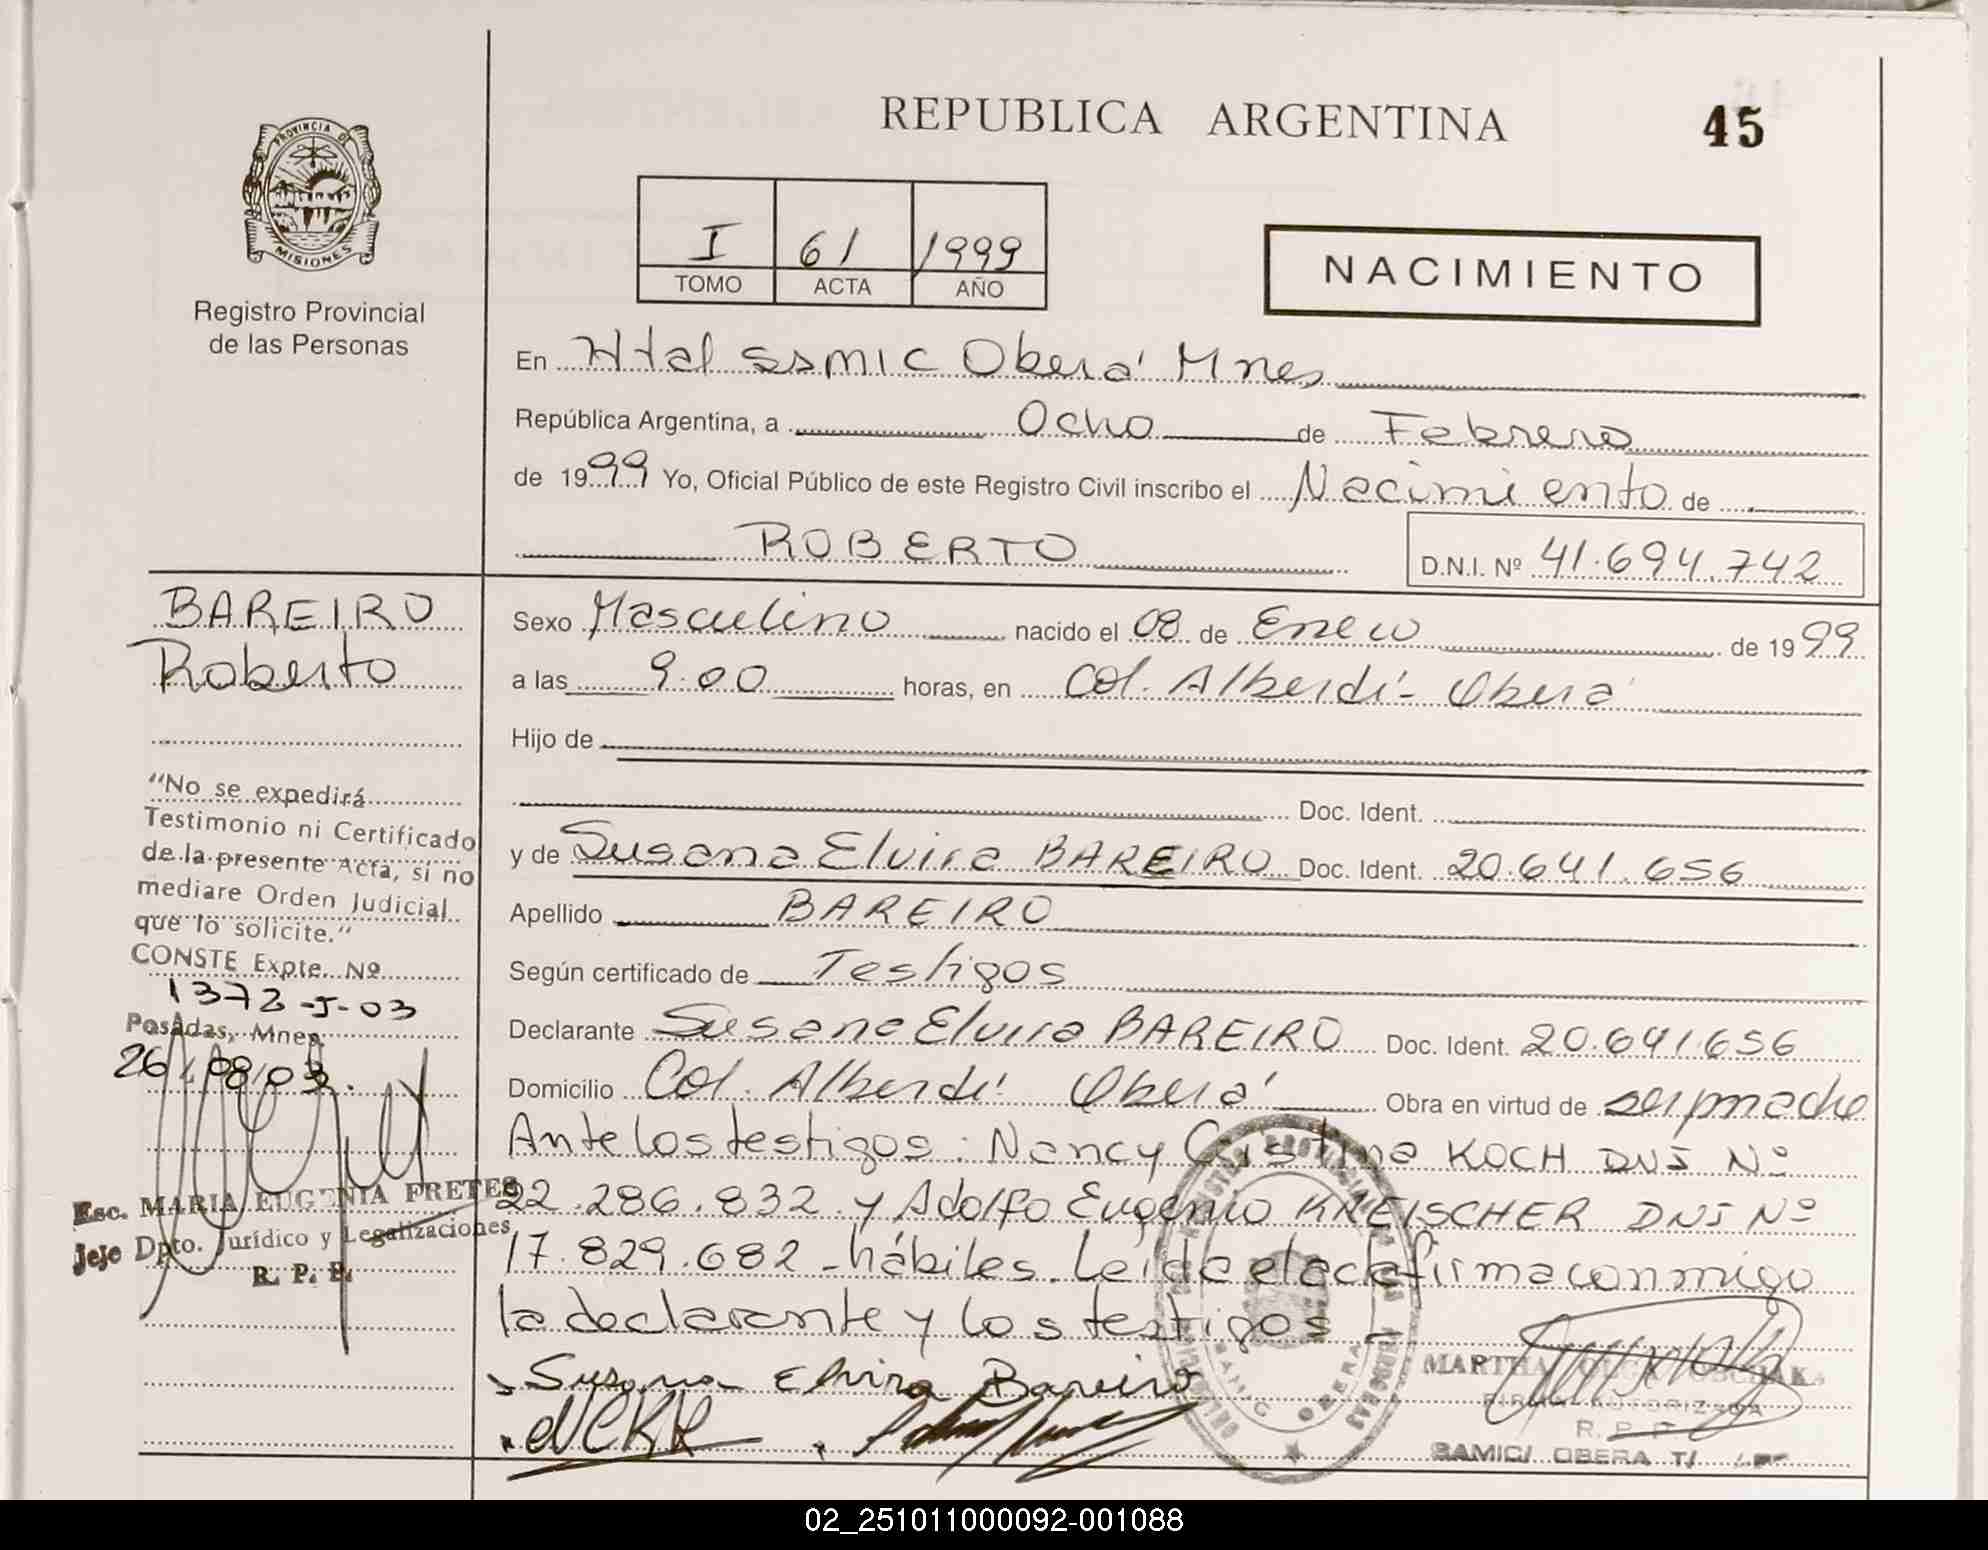 REPUBLICA ARGENTINA
45
PROVINCIA DE
MISIONES
Registro Provincial
de las Personas
I 61 1999
TOMO ACTA AÑO
NACIMIENTO
En Htal SSMIC Oberá Mnes
República Argentina, a Ocho de Febrero
de 1999 Yo, Oficial Público de este Registro Civil inscribo el Nacimiento de
ROBERTO
D.N.I. Nº 41.694.742
BAREIRO
Roberto
"No se expedirá
Testimonio ni Certificado
de la presente Acta, si no
mediare Orden Judicial
que lo solicite."
CONSTE Expte. Nº
1373-J-03
Posadas, Mnes,
26/08/03.
Esc. MARIA EUGENIA FRETES
Jefe Dpto. Jurídico y Legalizaciones
R. P. P.
Sexo Masculino nacido el 08 de Enero de 1999
a las 9.00 horas, en Col. Alberdi - Oberá
Hijo de
Doc. Ident.
y de Susana Elvira BAREIRO Doc. Ident. 20.641.656
Apellido BAREIRO
Según certificado de Testigos
Declarante Susana Elvira BAREIRO Doc. Ident. 20.641.656
Domicilio Col. Alberdi Oberá Obra en virtud de ser madre
Ante los testigos: Nancy Cristina KOCH DNI Nº
22.286.832 y Adolfo Eugenio KNEISCHER DNI Nº
17.829.682 - hábiles. Leída el acta firma conmigo
la declarante y los testigos
Susana Elvira Bareiro
MARTHA
FIRMA AUTORIZADA
R. P. P.
SAMIC/ OBERA
02_251011000092-001088